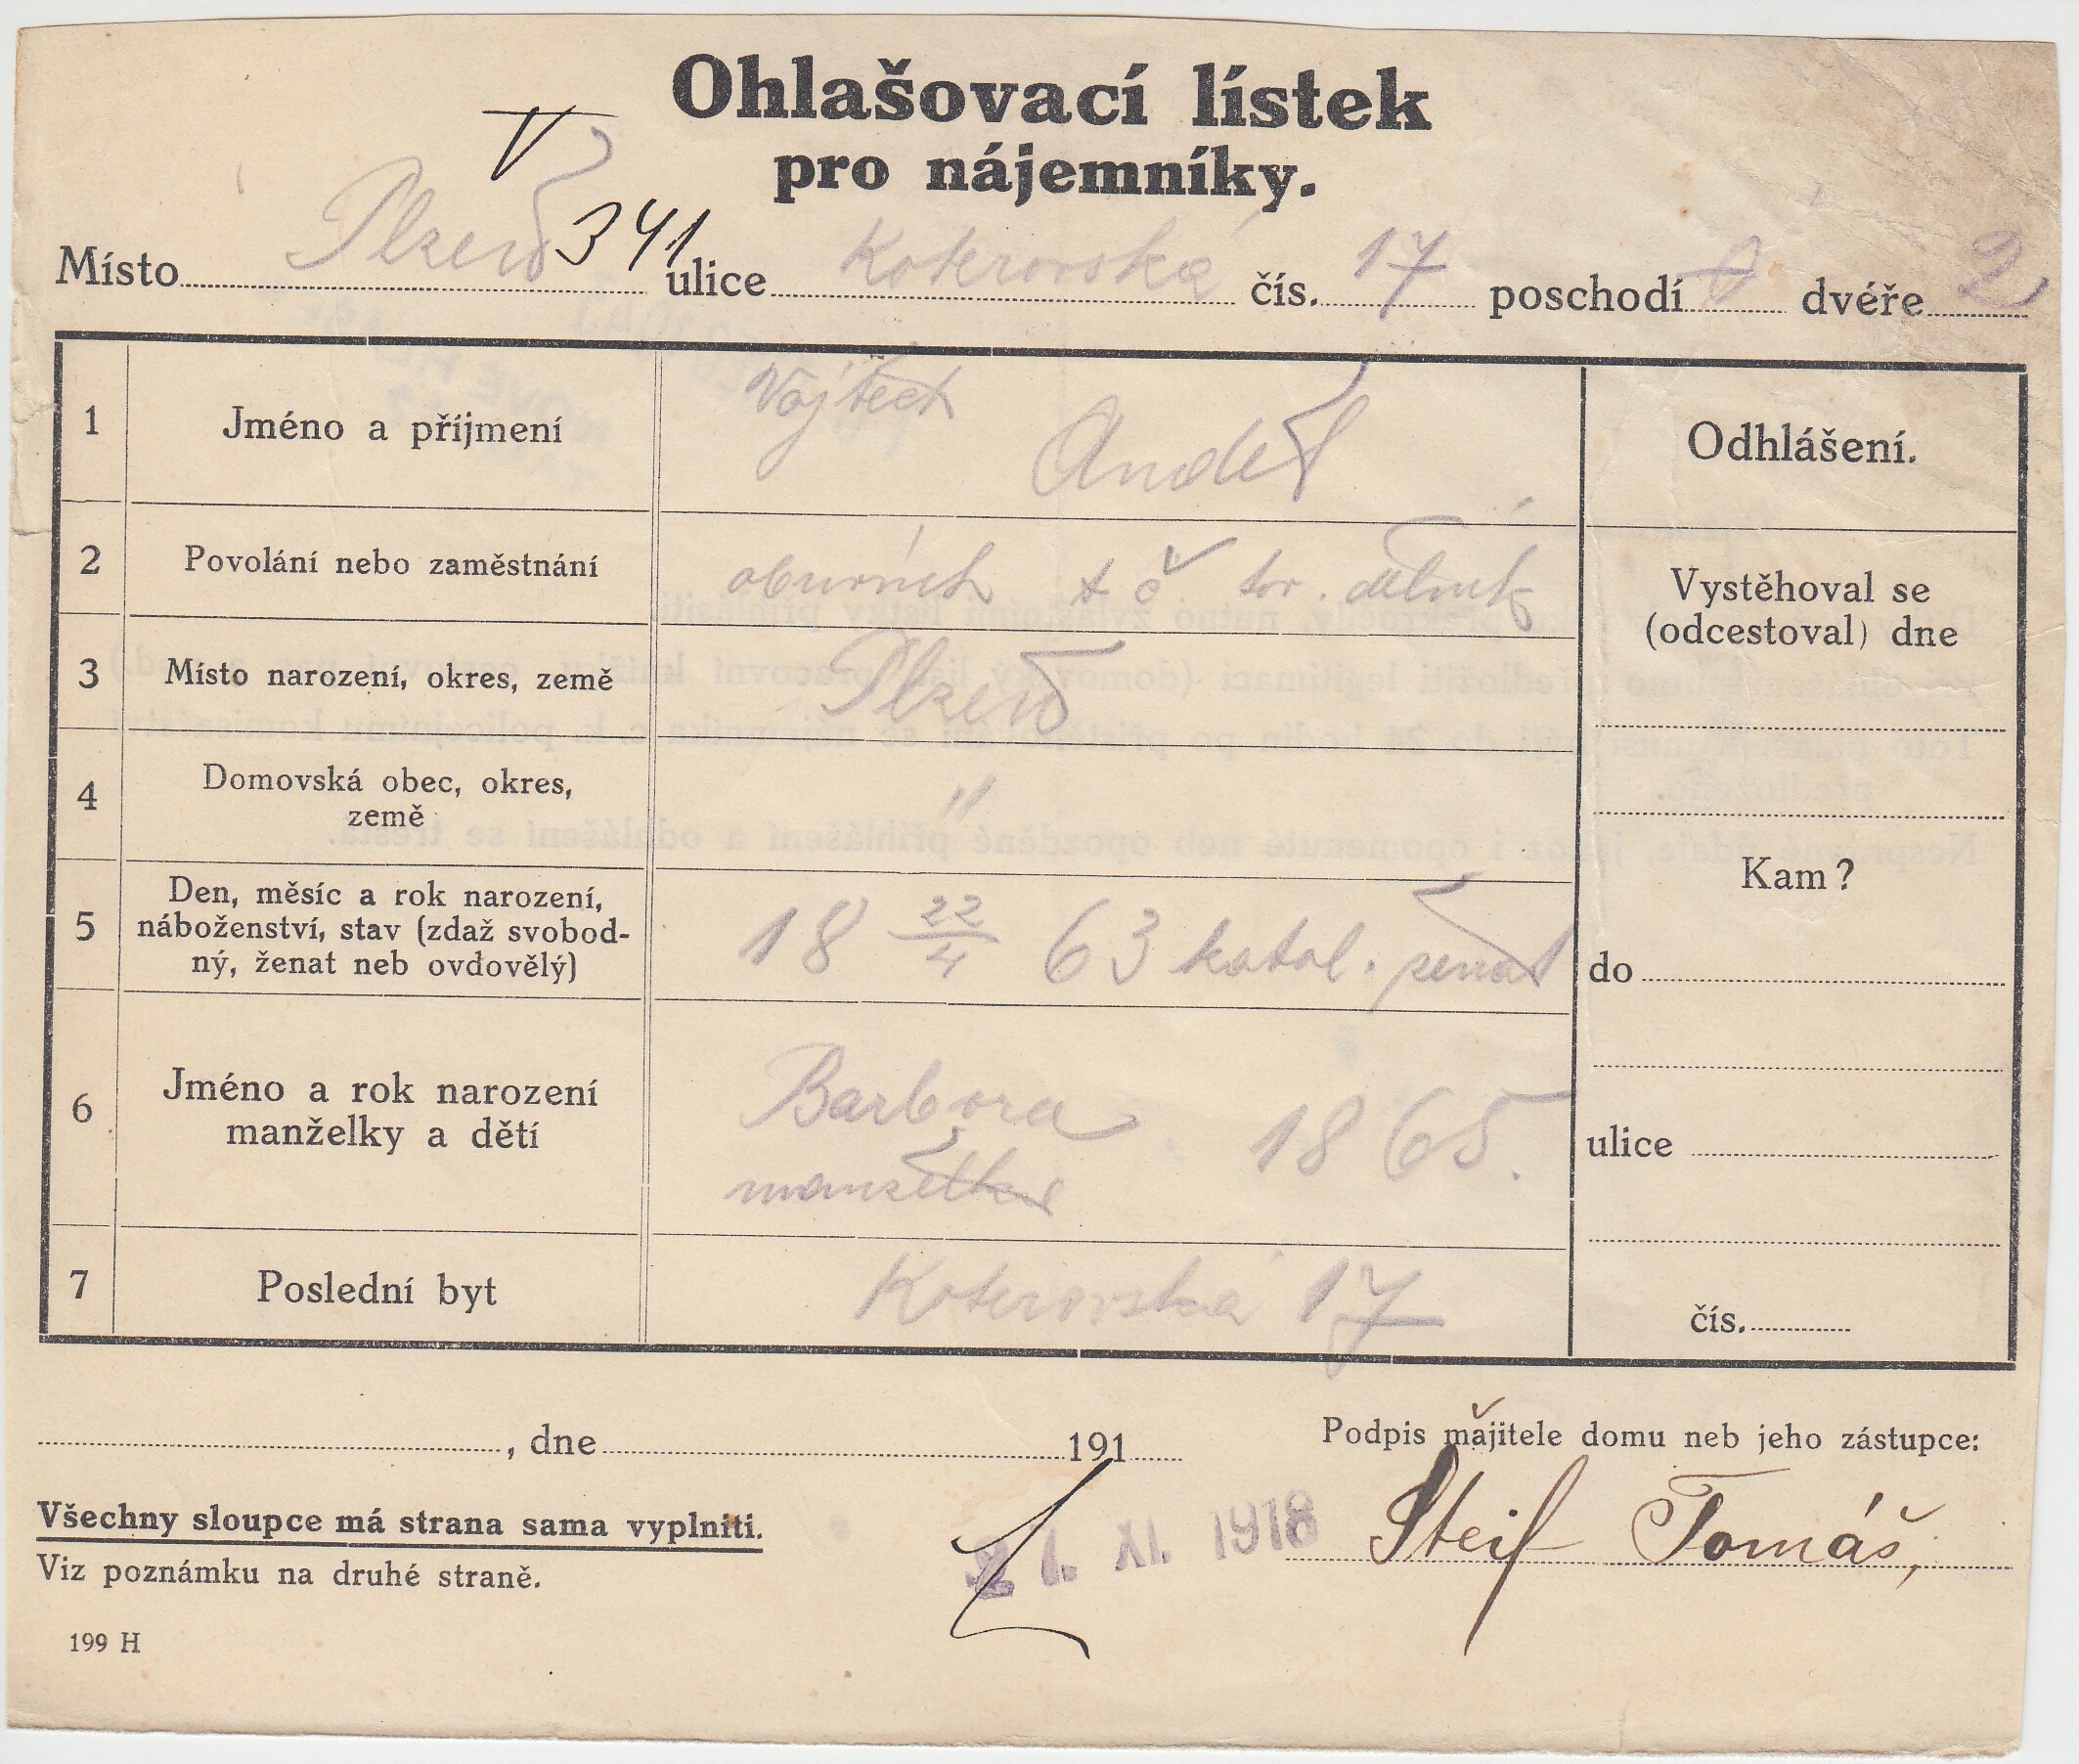 Ohlašovací lístek
pro nájemníky.
V
Místo Plzeň 341 ulice Koterovská čís. 17 poschodí 0 dvéře 2
1 Jméno a příjmení Vojtěch Anděl
Odhlášení.
2 Povolání nebo zaměstnání obuvník t č. tov. dělník
Vystěhoval se
(odcestoval) dne
3 Místo narození, okres, země Plzeň
4 Domovská obec, okres,
země "
Kam?
5 Den, měsíc a rok narození,
náboženství, stav (zdaž svobod-
ný, ženat neb ovdovělý) 18 22/4 63 katol. ženat
do
6 Jméno a rok narození
manželky a dětí Barbora 1865.
manželka
ulice
7 Poslední byt Koterovská 17
čís.
, dne 191
Podpis majitele domu neb jeho zástupce:
Všechny sloupce má strana sama vyplniti.
21. XI. 1918
Steif Tomáš,
Viz poznámku na druhé straně.
199 H